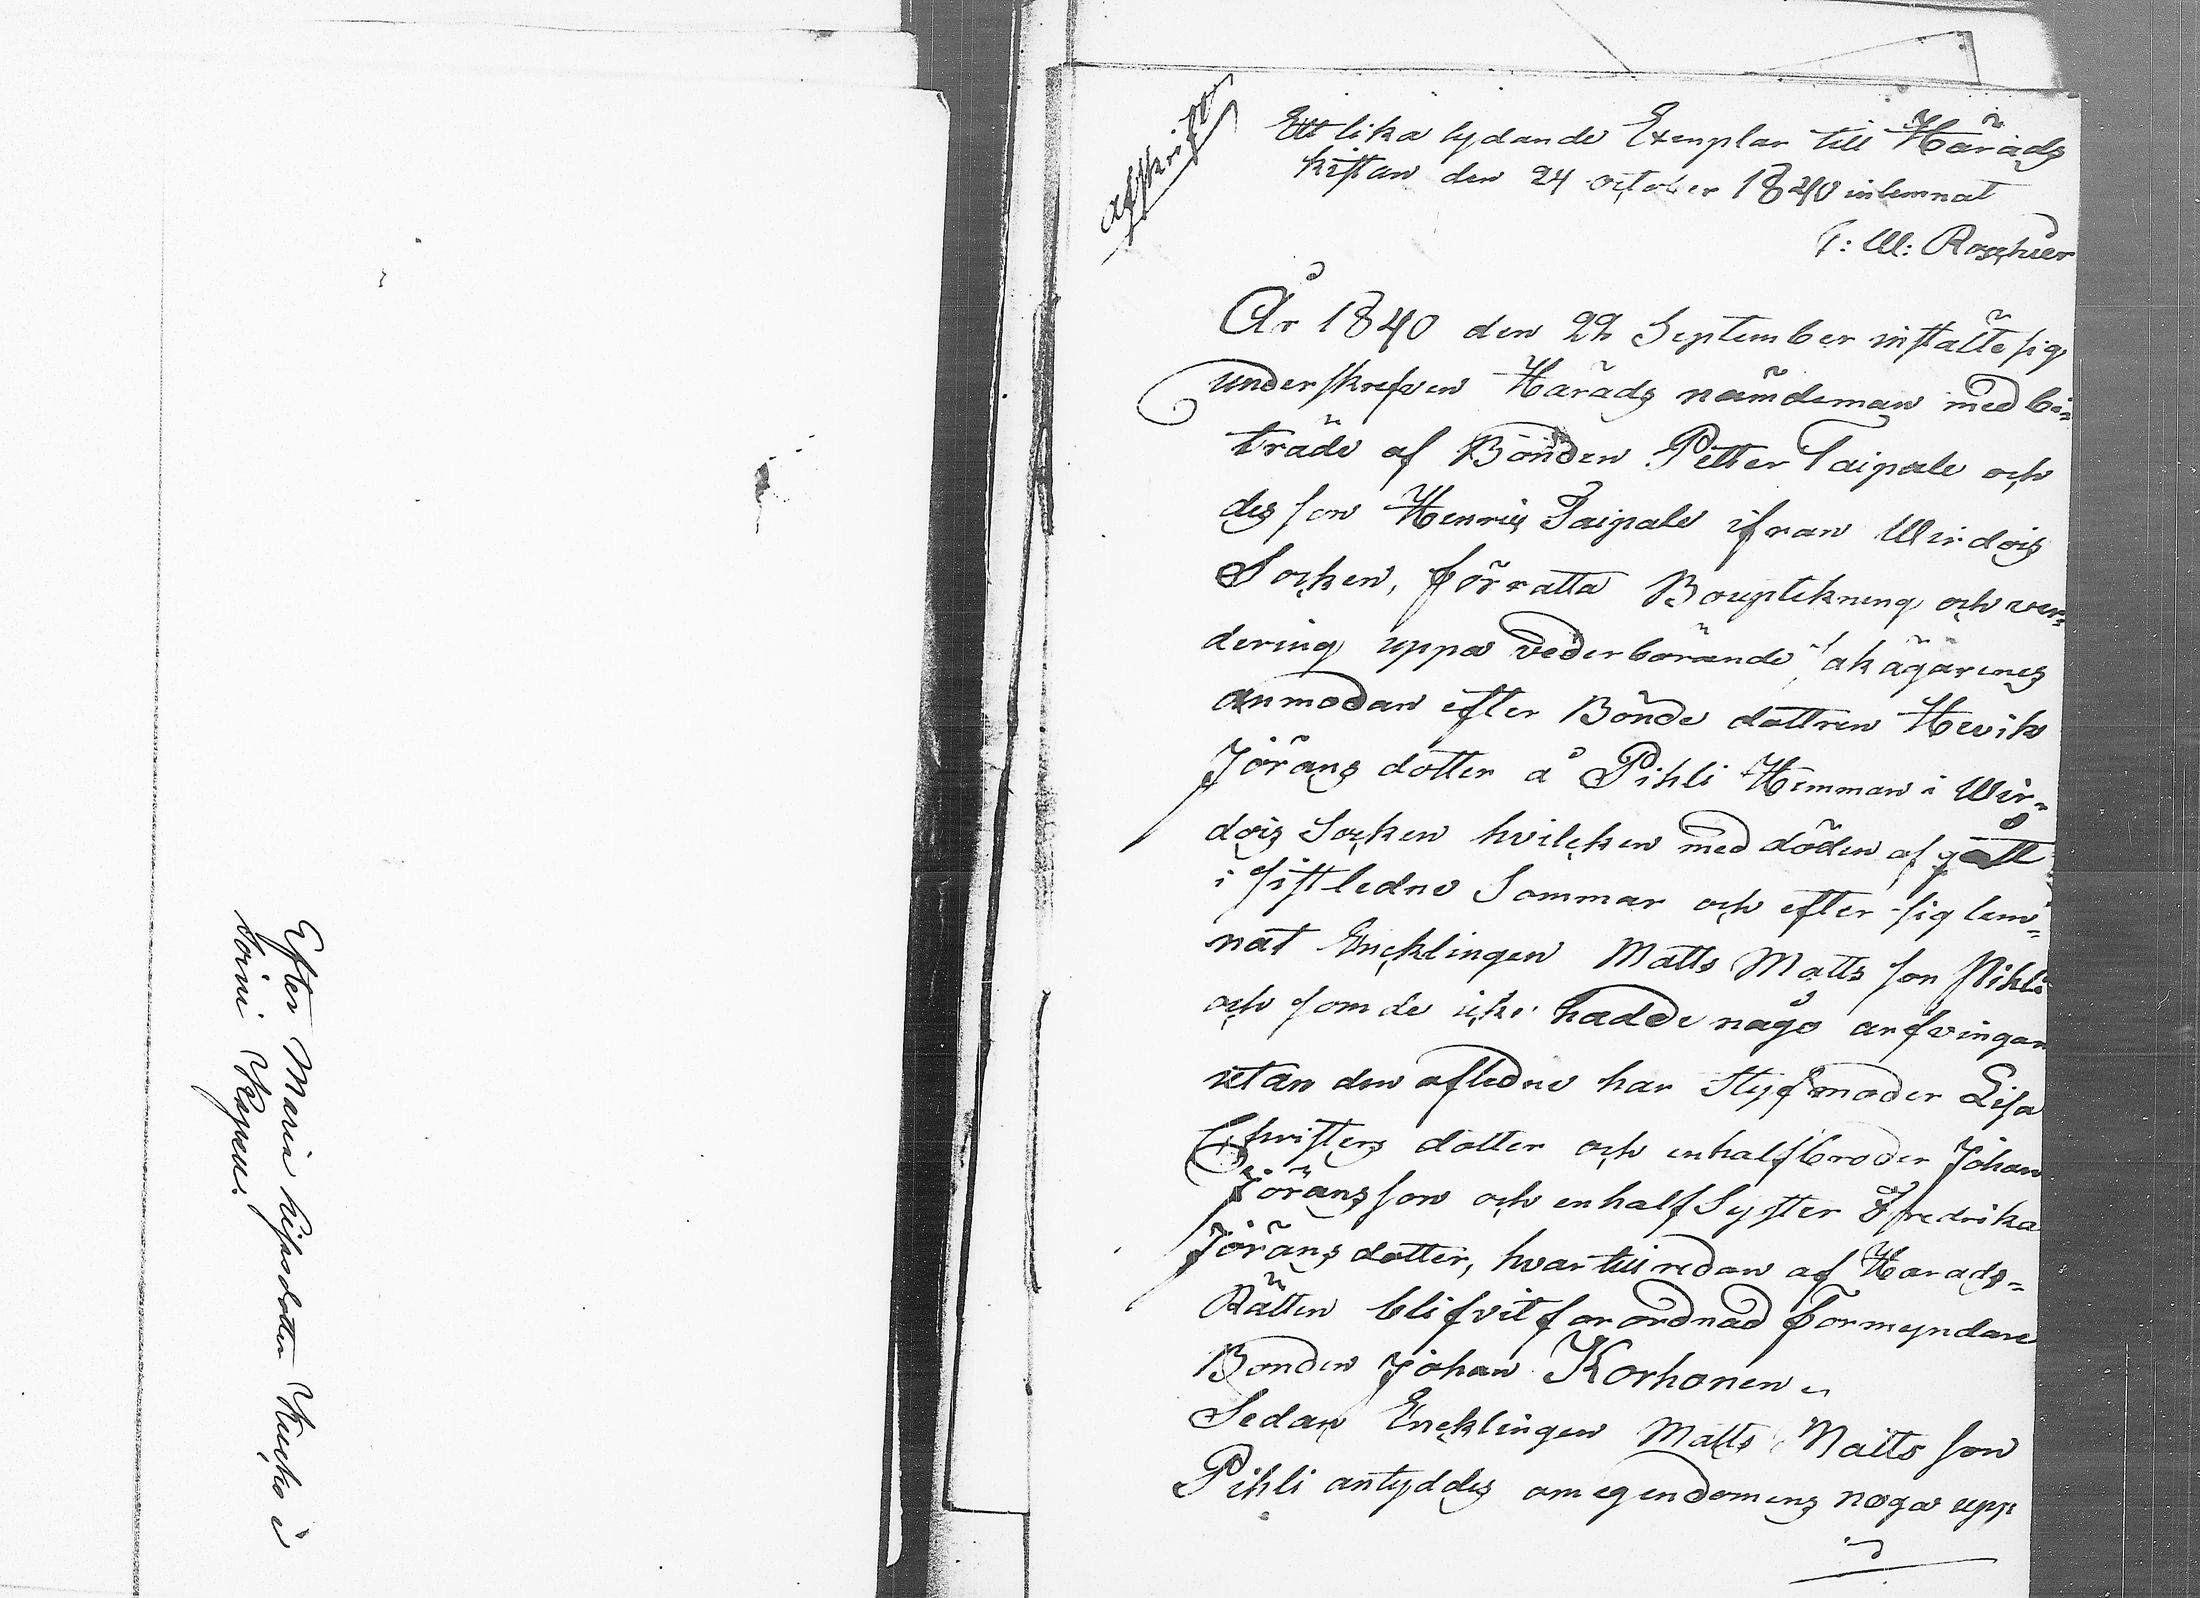 Efter Maria Lisasdotter Kusko i
Soini Kapell.
Afskrift
Ett lika lydande Exemplar till Härads
kistan den 24 october 1840 inlemnat
F: W: Roschier
År 1840 den 22 September instälte sig
underskrefven Härads nämdeman med bi-
träde af Bönden Petter Taipale och
des son Henric Taipale ifran Wirdois
Socken, förratta Bouptekning och ver-
dering uppå vederbörande sakägarenes
anmodan efter Bönde dottren Hevik
Jörans dotter å Pihli Hemman i Wir-
dois Socken hvilcken med döden afgått
i sistledne Sommar och efter sig lem-
nat Encklingen Matts Matts son Pihli
och som de icke hadde någo arfvingar
utan den afledne har styfmoder Lisa
Christers dotter och en halfbroder Johan
Jöransson och en half Syster Fredrika
Jörans dotter, hvartill redan af Harads-
Rätten blifvit forordnad Förmyndare
Bonden Johan Korhonen
Sedan Encklingen Matts Matts son
Pihli antyddes om egendomens noga upp